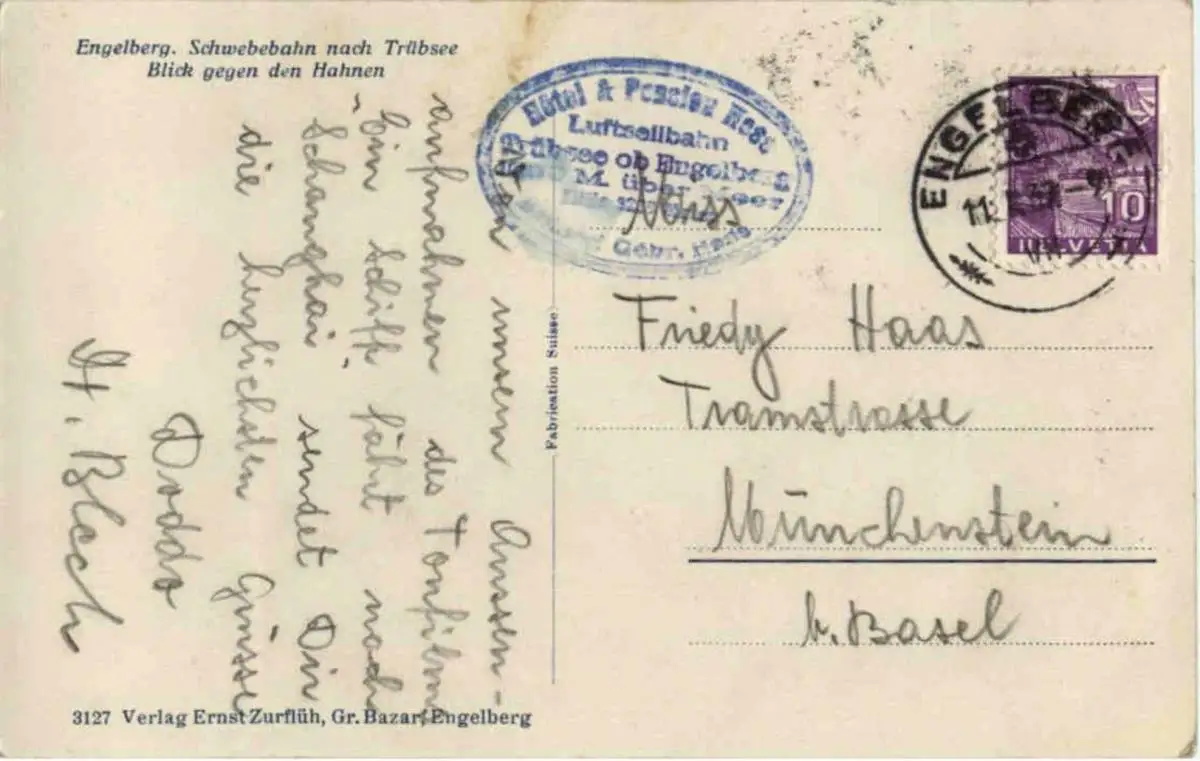 Engelberg. Schwebebahn nach Trübsee
Blick gegen den Hahnen
Von unsern Aussen-
aufnahmen des Tonfilms
"Ein Schiff fährt nach
Schanghai" sendet Dir
die herzlichsten Grüsse
Doddo
H. Blech
3127 Verlag Ernst Zurflüh, Gr. Bazar, Engelberg
Fabrication Suisse
Hôtel & Pension Hess
Luftseilbahn
Trübsee ob Engelberg
M. über Meer
Gebr. Hess
ENGELBERG
11.
10
HELVETIA
Miss
Friedy Haas
Tramstrasse
Münchenstein
b. Basel